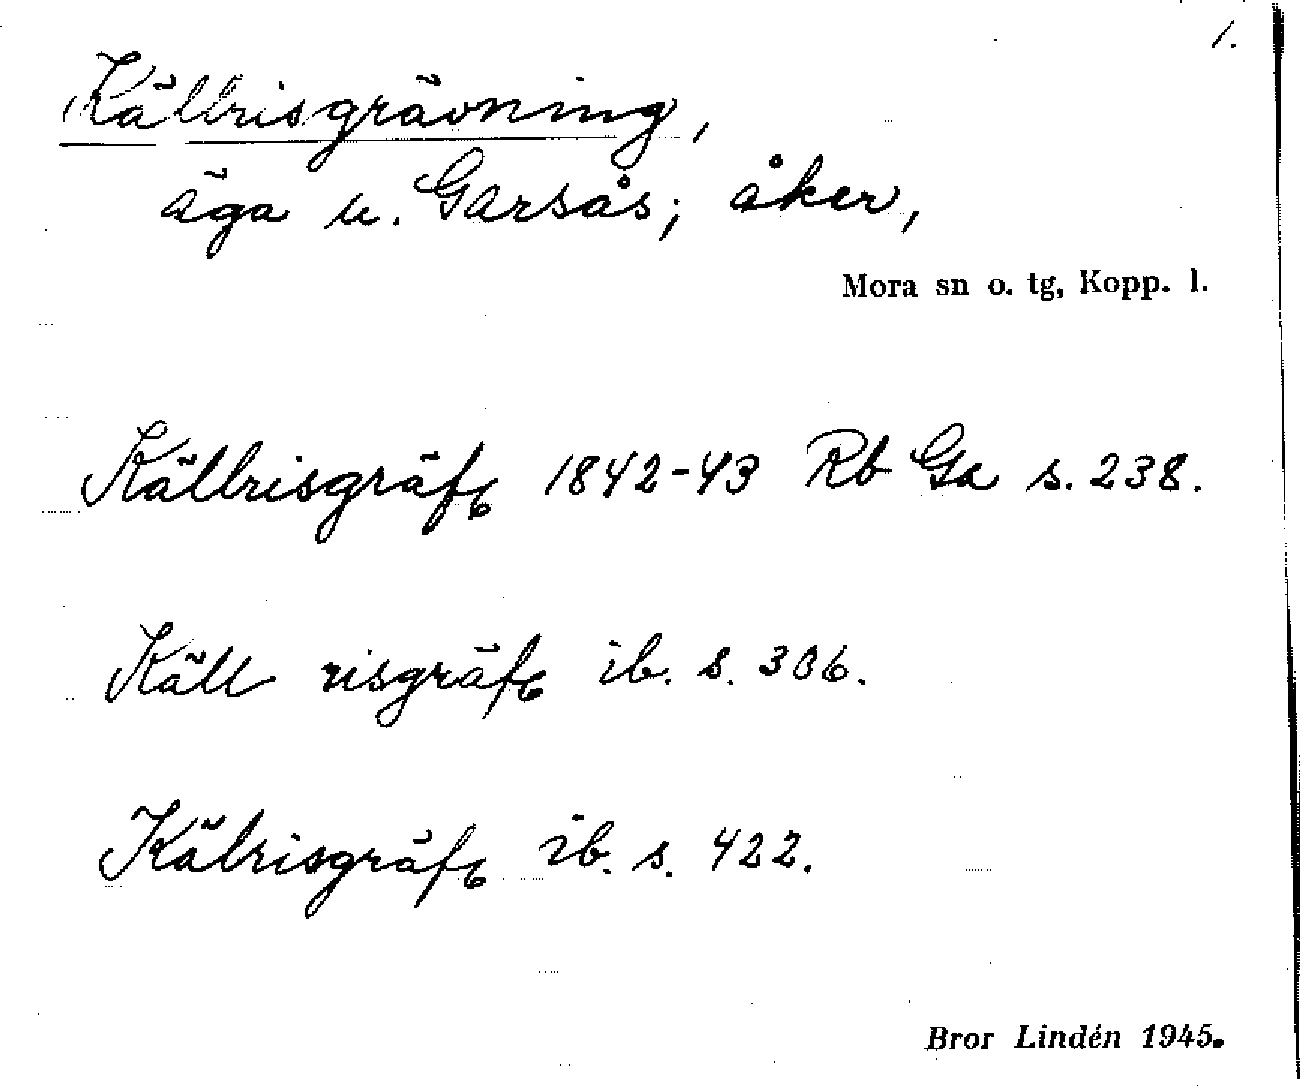 1.
Källrisgrävning,
äga u. Garsås; åker,
Mora sn o. tg, Kopp. l.
Källrisgräfg 1842-43 Rb Ga s. 238.
Käll risgräfg ib. s. 306.
Kälrisgräfg ib. s. 422.
Bror Lindén 1945.